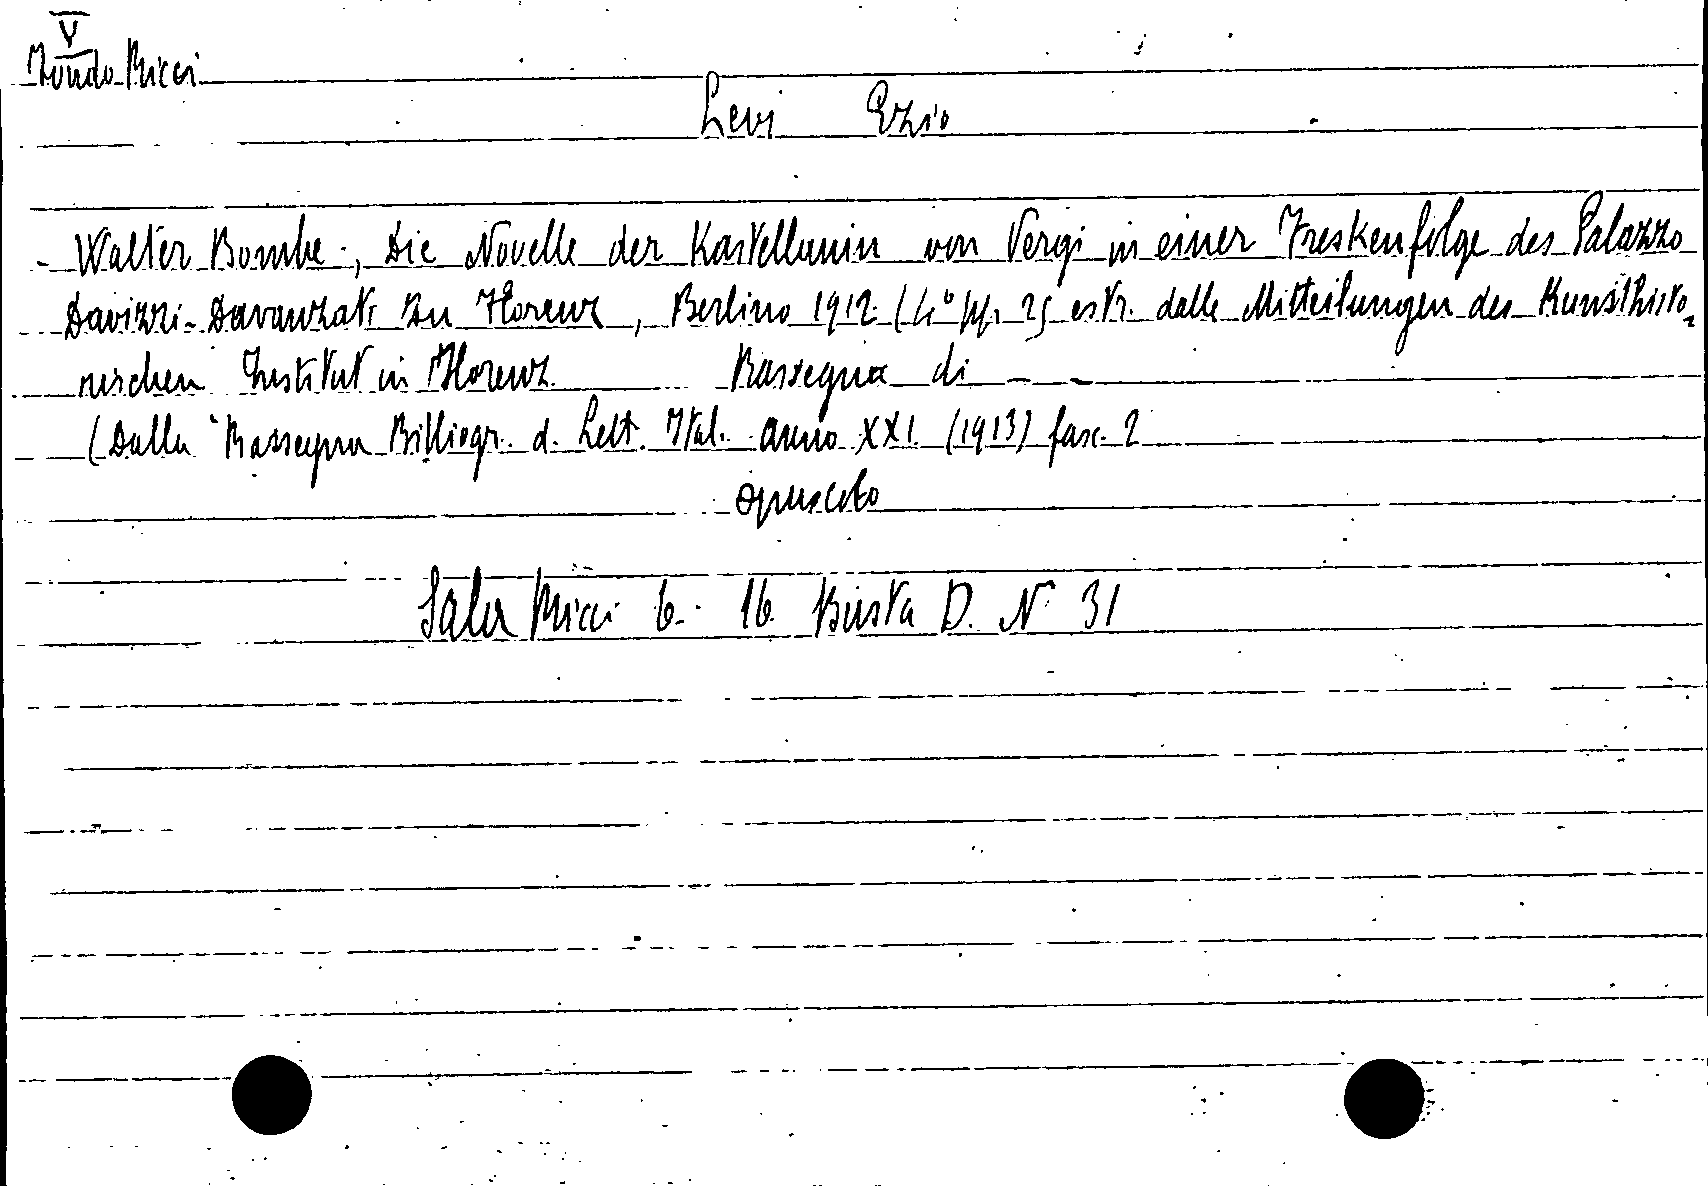 V
Fondo Ricci
Levi Ezio
- Walter Bombe ; Die Novelle der Kastellanin von Vergi in einer Freskenfolge des Palazzo
Davizzi-Davanzati zu Florenz, Berlino 1912 (4° pp. 25 estr. dalle Mitteilungen des Kunsthisto-
rischen Institut in Florenz Rassegna di - -
(Dalla "Rassegna Bibliogr. d. Lett. Ital. anno XXI (1913) fasc. 2
opuscolo
Sala Ricci 6. 16 Busta D. N° 31